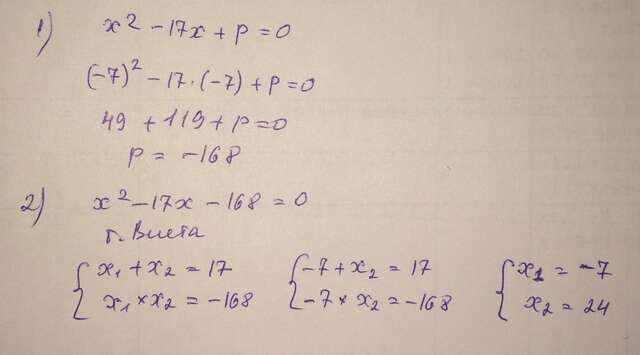 1) x² - 17x + p = 0
(-7)² - 17 · (-7) + p = 0
49 + 119 + p = 0
p = -168
2) x² - 17x - 168 = 0
т. Виета
{ x₁ + x₂ = 17 { -7 + x₂ = 17 { x₁ = -7
x₁ × x₂ = -168 -7 × x₂ = -168 x₂ = 24